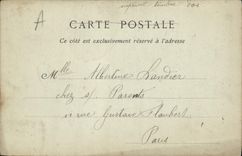 A
CARTE POSTALE
Ce côté est exclusivement réservé à l'adresse
Mlle Albertine Landier
chez s/ Parents
rue Gustave Flaubert
Paris